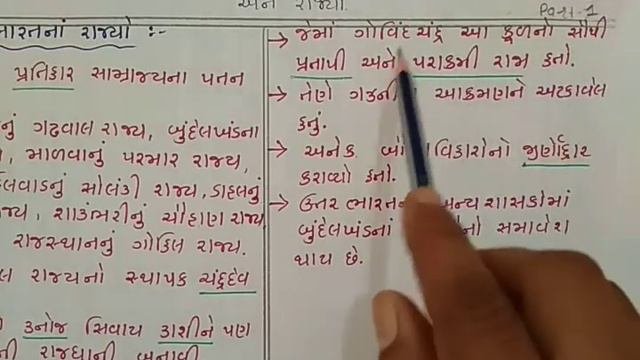 અને રાજ્યો.
Part-1
ારતનાં રાજ્યો :-
પ્રતિકાર સામ્રાજ્યના પતન
નું ગઢવાલ રાજ્ય, બુંદેલખંડના
, માળવાનું પરમાર રાજ્ય,
લવાડનું સોલંકી રાજ્ય, ડાહલનું
જ્ય, શાકંભરીનું ચૌહાણ રાજ્ય
રાજસ્થાનનું ગોહિલ રાજ્ય.
લ રાજ્યનો સ્થાપક ચંદ્રદેવ
કનોજ સિવાય કાશીને પણ
ની રાજધાની બનાવી
→ જેમાં ગોવિંદચંદ્ર આ કૂળનો સૌથી
પ્રતાપી અને પરાક્રમી રાજા હતો.
→ તેણે આક્રમણને અટકાવેલ
હતું.
→ અનેક વિહારોનો જીર્ણોદ્ધાર
કરાવ્યો હતો.
→ ઉત્તર ભારતના અન્ય શાસકોમાં
બુંદેલખંડનાં નો સમાવેશ
થાય છે.